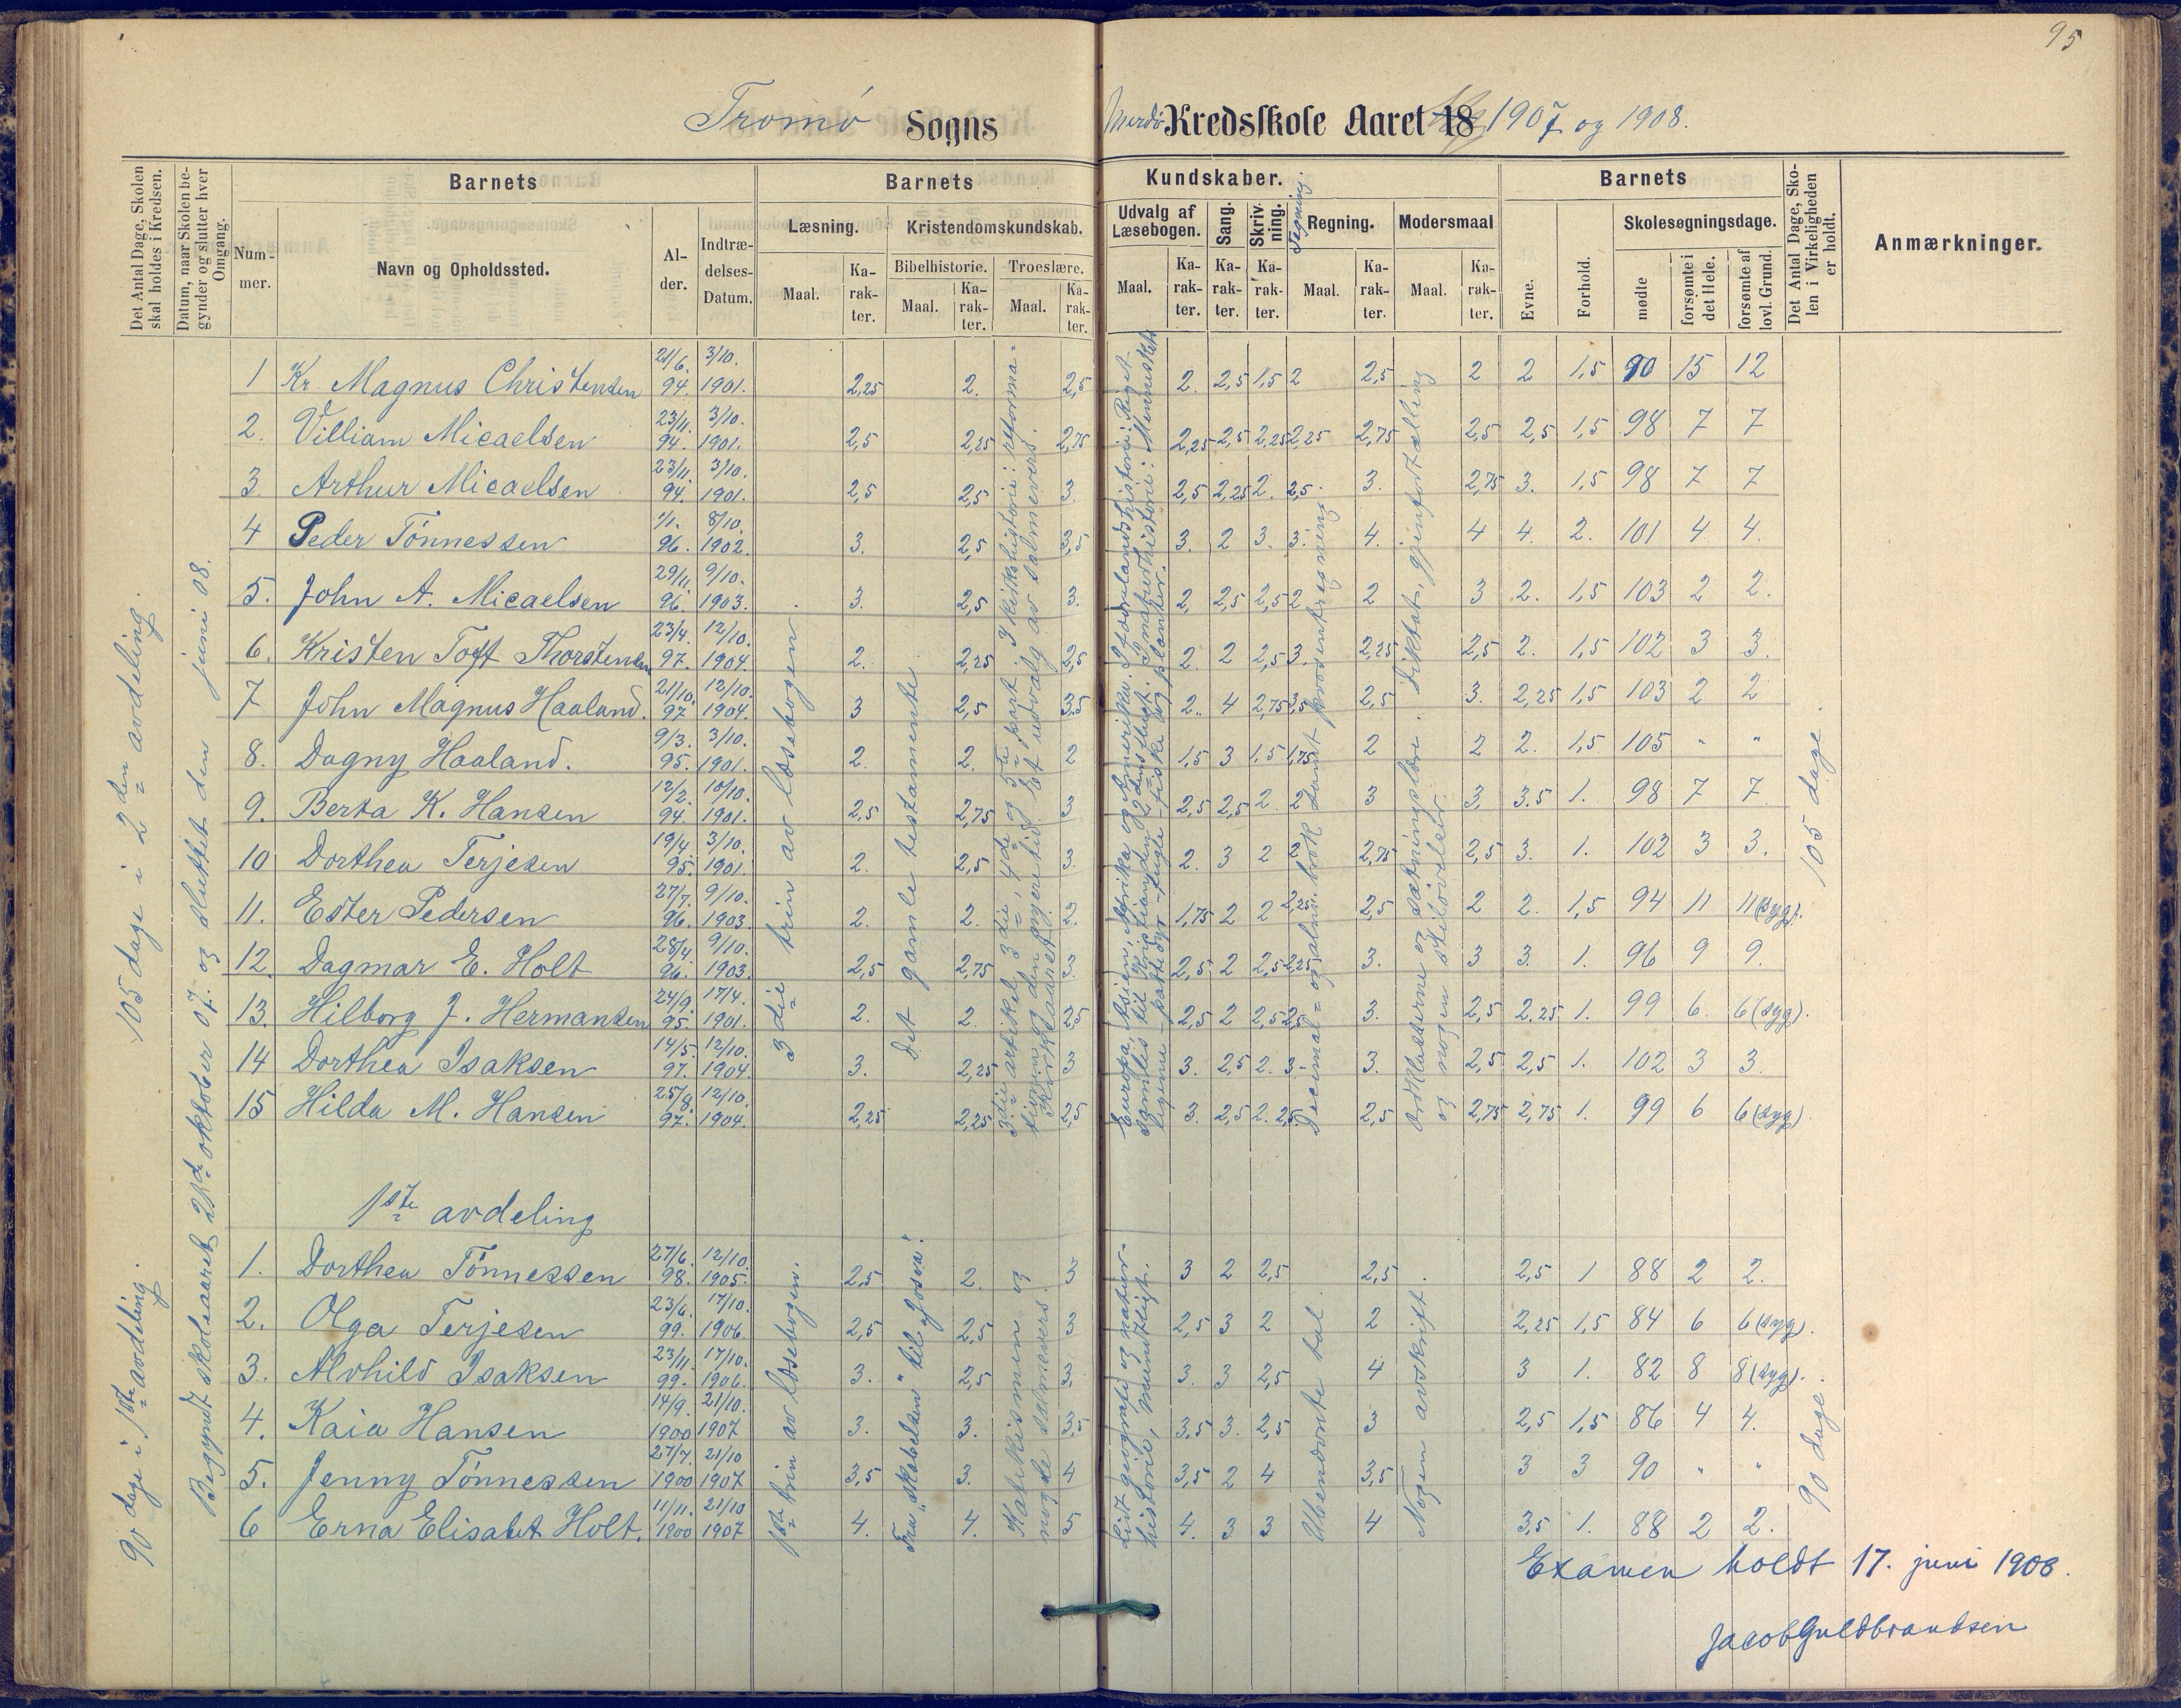 95
Tromø Sogns Merdø Kredsskole Aaret 18 1907 og 1908.
Det Antal Dage, Skolen skal holdes i Kredsen.
Datum, naar Skolen begynder og slutter hver Omgang.
Barnets
Nummer.
Navn og Opholdssted.
Alder.
Indtrædelses-Datum.
Barnets Kundskaber.
Læsning.
Maal.
Karakter.
Kristendomskundskab.
Bibelhistorie.
Maal.
Karakter.
Troeslære.
Maal.
Karakter.
Udvalg af Læsebogen.
Maal.
Karakter.
Sang.
Karakter.
Skrivning.
Karakter.
Tegning.
Regning.
Maal.
Karakter.
Modersmaal
Maal.
Karakter.
Barnets
Evne.
Forhold.
Skolesøgningsdage.
mødte
forsømte i det Hele.
forsømte af lovl. Grund.
Det Antal Dage, Skolen i Virkeligheden er holdt.
Anmærkninger.
105 dage i 2den avdeling.
90 dage i 1ste avdeling.
Begyndt skoleaaret 21de oktober 07. og sluttet den juni 08.
1 Kr. Magnus Christensen 21/6. 94. 3/10. 1901. 2,25 2. 2,5 2. 2,5 1,5 2 2,5 2 2 1,5 90 15 12
2. Villiam Micaelsen 23/11. 94. 3/10. 1901. 2,5 2,25 2,75 2,25 2,5 2,25 2,25 2,75 2,5 2,5 1,5 98 7 7
3. Arthur Micaelsen 23/11. 94. 3/10. 1901. 2,5 2,5 3. 2,5 2,25 2. 2,5. 3. 2,75 3. 1,5 98 7 7
4 Peder Tönnessen 1/1. 96. 8/10. 1902. 3. 2,5 3,5 3. 2 3. 3. 4. 4 4. 2. 101 4 4.
5. John A. Micaelsen 29/11. 96. 9/10. 1903. 3. 2,5 3. 2, 2,5 2,5 2 2 3 2. 1,5 103 2 2.
6. Kristen Toft Thorstensen 23/4. 97. 12/10. 1904. 2. 2,25 2,5 2. 2 2,5 3. 2,25 2,5 2. 1,5 102 3 3.
7 John Magnus Haaland. 21/10. 97 12/10. 1904. 3 2,5 3,5 2. 4 2,75 3,5 2,5 3. 2,25 1,5 103 2 2
8. Dagny Haaland. 9/3. 95. 3/10. 1901. 2. 2. 2 1,5 3 1,5 1,75 2 2 2. 1,5 105 " "
9. Berta K. Hansen 12/2. 94. 10/10. 1901. 2,5 2,75 3 2,5 2,5 2. 2 3 3. 3.5 1. 98 7 7.
10 Dorthea Terjesen 19/4 95. 3/10. 1901. 2. 2,5 3. 2. 3 2 2 2,75 2,5 3. 1. 102 3 3.
11. Ester Pedersen 27/7. 96. 9/10. 1903. 2. 2. 2. 1,75 2 2 2,25 2,5 2 2. 1,5 94 11 11 (syg).
12. Dagmar E. Holt 28/4 96. 9/10. 1903. 2,5 2,75 3. 2,5 2 2,5 2,25 3. 3 3. 1. 96 9 9.
13. Hilborg J. Hermansen 24/9. 95. 17/4. 1901. 2. 2. 2,5 2,5 2 2,5 2,5 3. 2,5 2,25 1. 99 6. 6 (syg).
14 Dorthea Isaksen 14/5. 97. 12/10. 1904. 3. 2,25 3 3. 2,5 2. 3- 3. 2,5 2,5 1. 102 3 3.
15 Hilda M. Hansen 25/8. 97. 12/10. 1904. 2,25 2,25 2,5 3. 2,5 2. 2,5. 2,5 2,75 2,75 1. 99 6 6 (syg).
3die trin av læsebogen.
Det gamle testamente
3die artikel, 3die, 4de og 5te part. I kirkehistorie: reformationen og den nyere tid. Et udvalg av salmevers. Kirkeaaret.
Europa, Asien, Afrika og Amerika. I fædrelandshistorie: Riget samles til Kristian den 2dens flugt. I naturhistorie: Mennesket, pattedyr - fugle - fiske og planter.
Decimal= og alm. brøk samt procentregning
Ordklasserne og sætningslære. Diktat, gjenfortælling og nogen stiløvelser.
105 dage.
1ste avdeling
1. Dorthea Tönnessen 27/6. 98. 12/10. 1905. 2,5 2. 3 3 2 2,5 2,5 2,5 1 88 2 2.
2. Olga Terjesen 23/6. 99. 17/10. 1906. 2,5 2,5 3 2,5 3 2 2 2,25 1,5 84 6 6 (syg).
3. Alvhild Isaksen 23/11. 99. 17/10. 1906. 3. 2,5 3. 3. 3 2,5 4 3 1. 82 8 8 (syg).
4. Kaia Hansen 14/9. 1900 21/10. 1907 3. 3. 3,5 3,5 3. 2,5 3 2,5 1,5 86 4 4.
5. Jenny Tönnessen 27/7. 1900 21/10 1907 3,5 3. 4 3,5 2 4 3,5 3 3 90 " "
6 Erna Elisabet Holt. 11/11. 1900 21/10 1907 4. 4. 5 4. 3 3 4 3,5 1. 88 2 2.
1ste trin av læsebogen.
Fra "skabelsen" til "Josva".
Katekismen og nogle salmevers.
Lidt geografi og naturhistorie, mundtligt.
Ubenævnte tal
Nogen avskrift.
90 dage.
Examen holdt 17. juni 1908.
Jacob Guldbrandsen